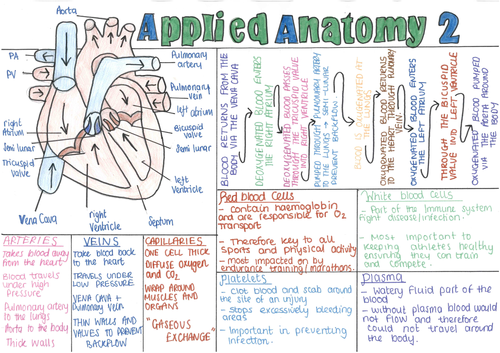 Applied Anatomy 2
Aorta
PA
PV
Pulmonary
artery
Pulmonary
vein
left atrium
Bicuspid
valve
Semi lunar
left
ventricle
right
Atrium
Semi lunar
Tricuspid
valve
Vena Cava
right
ventricle
Septum
BLOOD RETURNS FROM THE
BODY VIA THE VENA CAVA
DEOXYGENATED BLOOD ENTERS
THE RIGHT ATRIUM
DEOXYGENATED BLOOD PASSES
THROUGH THE TRICUSPID VALVE
INTO RIGHT VENTRICLE
PUMPED THROUGH PULMONARY ARTERY
TO THE LUNGS → SEMI-LUNAR
PREVENT BACKFLOW
BLOOD IS OXYGENATED AT
THE LUNGS
OXYGENATED BLOOD RETURNS
TO THE HEART THROUGH PULMONARY
VEIN
OXYGENATED BLOOD ENTERS
THE LEFT ATRIUM
THROUGH THE BICUSPID
VALVE INTO LEFT VENTRICLE
OXYGENATED BLOOD PUMPED
VIA THE AORTA AROUND
THE BODY
ARTERIES
Takes blood away
from the heart
Blood travels
under high
Pressure
Pulmonary artery
to the lungs
Aorta to the body
Thick Walls
VEINS
TAKE BLOOD BACK
TO THE HEART
TRAVELS UNDER
LOW PRESSURE
VENA CAVA +
PULMONARY VEIN
THIN WALLS AND
VALVES TO PREVENT
BACKFLOW
CAPILLARIES
ONE CELL THICK
DIFFUSE OXYGEN
and CO2
WRAP AROUND
MUSCLES AND
ORGANS
"GASEOUS
EXCHANGE"
Red Blood Cells
- contain haemoglobin
and are responsible for O2
transport
- Therefore key to all
sports and physical activity
- most impacted on by
endurance training/marathons.
White blood Cells
- Part of the immune system
Fight disease/infection.
- Most important to
keeping athletes healthy
ensuring they can train
and compete.
Platelets
- clot blood and stab around
the site of an injury
- stops excessively bleeding
areas
- Important in preventing
infection.
Plasma
- Watery fluid part of the
blood
- without plasma blood would
not flow and therefore
could not travel around
the body.